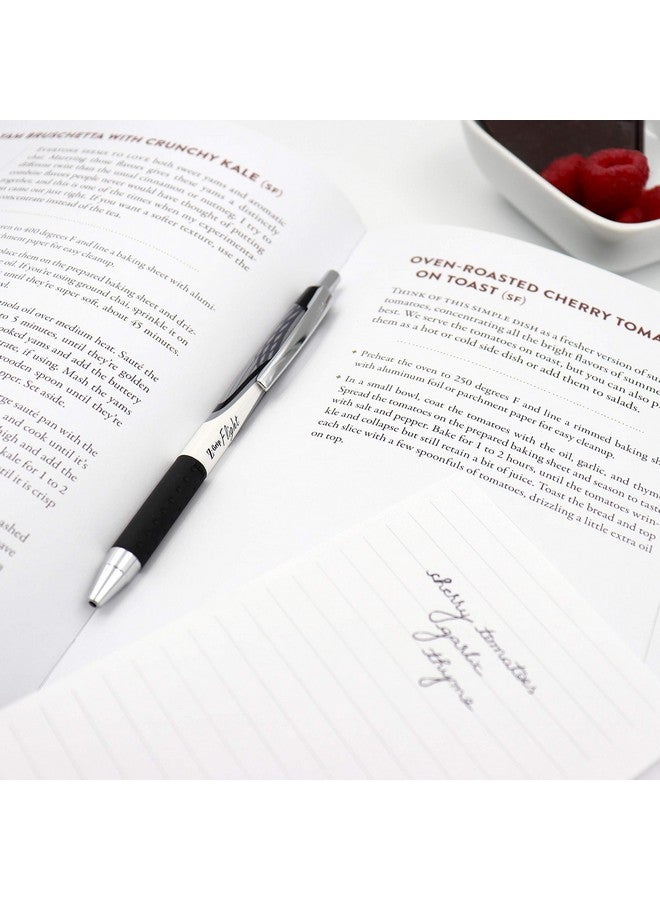 AM BRUSCHETTA WITH CRUNCHY KALE (SF)
EVERYONE SEEMS TO LOVE both sweet yams and aromatic
chai. Marrying those flavors gives these yams a distinctly
different twist than the usual cinnamon or nutmeg. I try to
combine flavors people never would have thought of putting
together, and this is one of the times when my experimenta-
came out just right. If you want a softer texture, use the
concentrate instead of the tea.
en to 400 degrees F and line a baking sheet with alumi-
hment paper for easy cleanup.
place them on the prepared baking sheet and driz-
oil. If you're using ground chai, sprinkle it on
until they're super soft, about 45 minutes.
nola oil over medium heat. Sauté the
to 5 minutes, until they're golden
ooked yams and add the buttery
rate, if using. Mash the yams
wooden spoon until they're
pper. Set aside.
rge sauté pan with the
and cook until it's
ugh and add the
kale for 1 to 2
til it is crisp
ashed
eave
Zoom Flight
OVEN-ROASTED CHERRY TOMA
ON TOAST (SF)
THINK OF THIS SIMPLE DISH as a fresher version of su
tomatoes, concentrating all the bright flavors of summe
best. We serve the tomatoes on toast, but you can also p
them as a hot or cold side dish or add them to salads.
• Preheat the oven to 250 degrees F and line a rimmed baking sh
with aluminum foil or parchment paper for easy cleanup.
• In a small bowl, coat the tomatoes with the oil, garlic, and thym
Spread the tomatoes on the prepared baking sheet and season to tast
with salt and pepper. Bake for 1 to 2 hours, until the tomatoes wrin-
kle and collapse but still retain a bit of juice. Toast the bread and top
each slice with a few spoonfuls of tomatoes, drizzling a little extra oil
on top.
cherry tomatoes
garlic
thyme